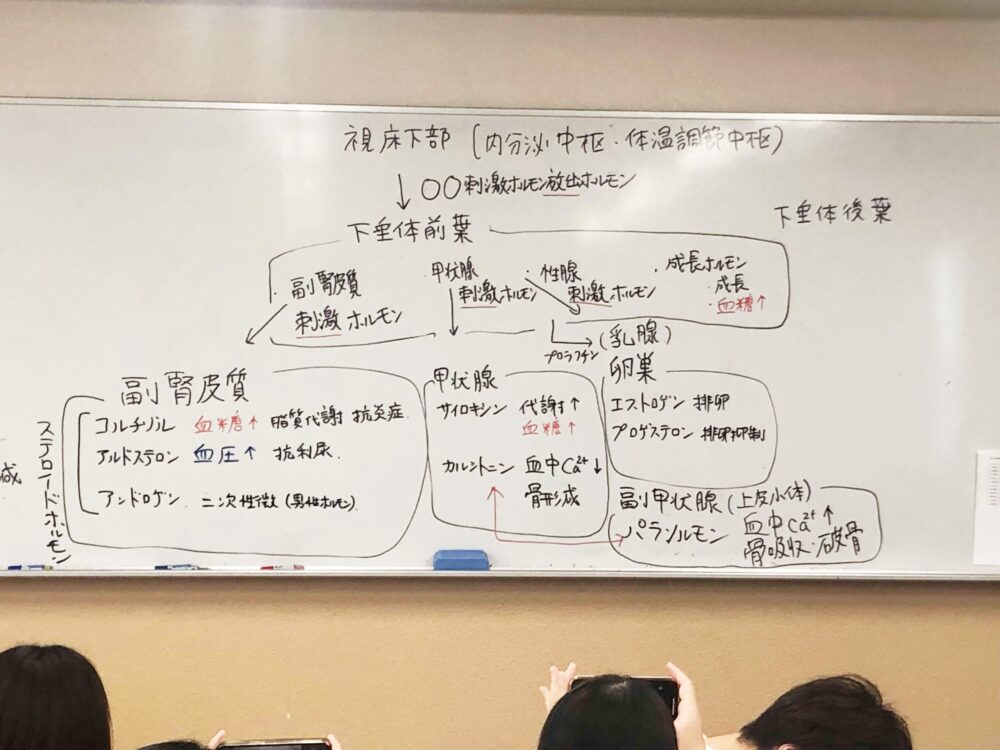 視床下部 (内分泌中枢・体温調節中枢)
↓ ○○刺激ホルモン放出ホルモン
下垂体前葉
下垂体後葉
・副腎皮質
刺激ホルモン
・甲状腺
刺激ホルモン
・性腺
刺激ホルモン
・成長ホルモン
・成長
・血糖↑
プロラクチン
(乳腺)
副腎皮質
ステロイドホルモン
コルチゾル 血糖↑ 脂質代謝 抗炎症
アルドステロン 血圧↑ 抗利尿
アンドロゲン 二次性徴 (男性ホルモン)
甲状腺
サイロキシン 代謝↑
血糖↑
カルシトニン 血中Ca²⁺↓
骨形成
卵巣
エストロゲン 排卵
プロゲステロン 排卵抑制
副甲状腺 (上皮小体)
パラソルモン 血中Ca²⁺↑
骨吸収・破骨
減